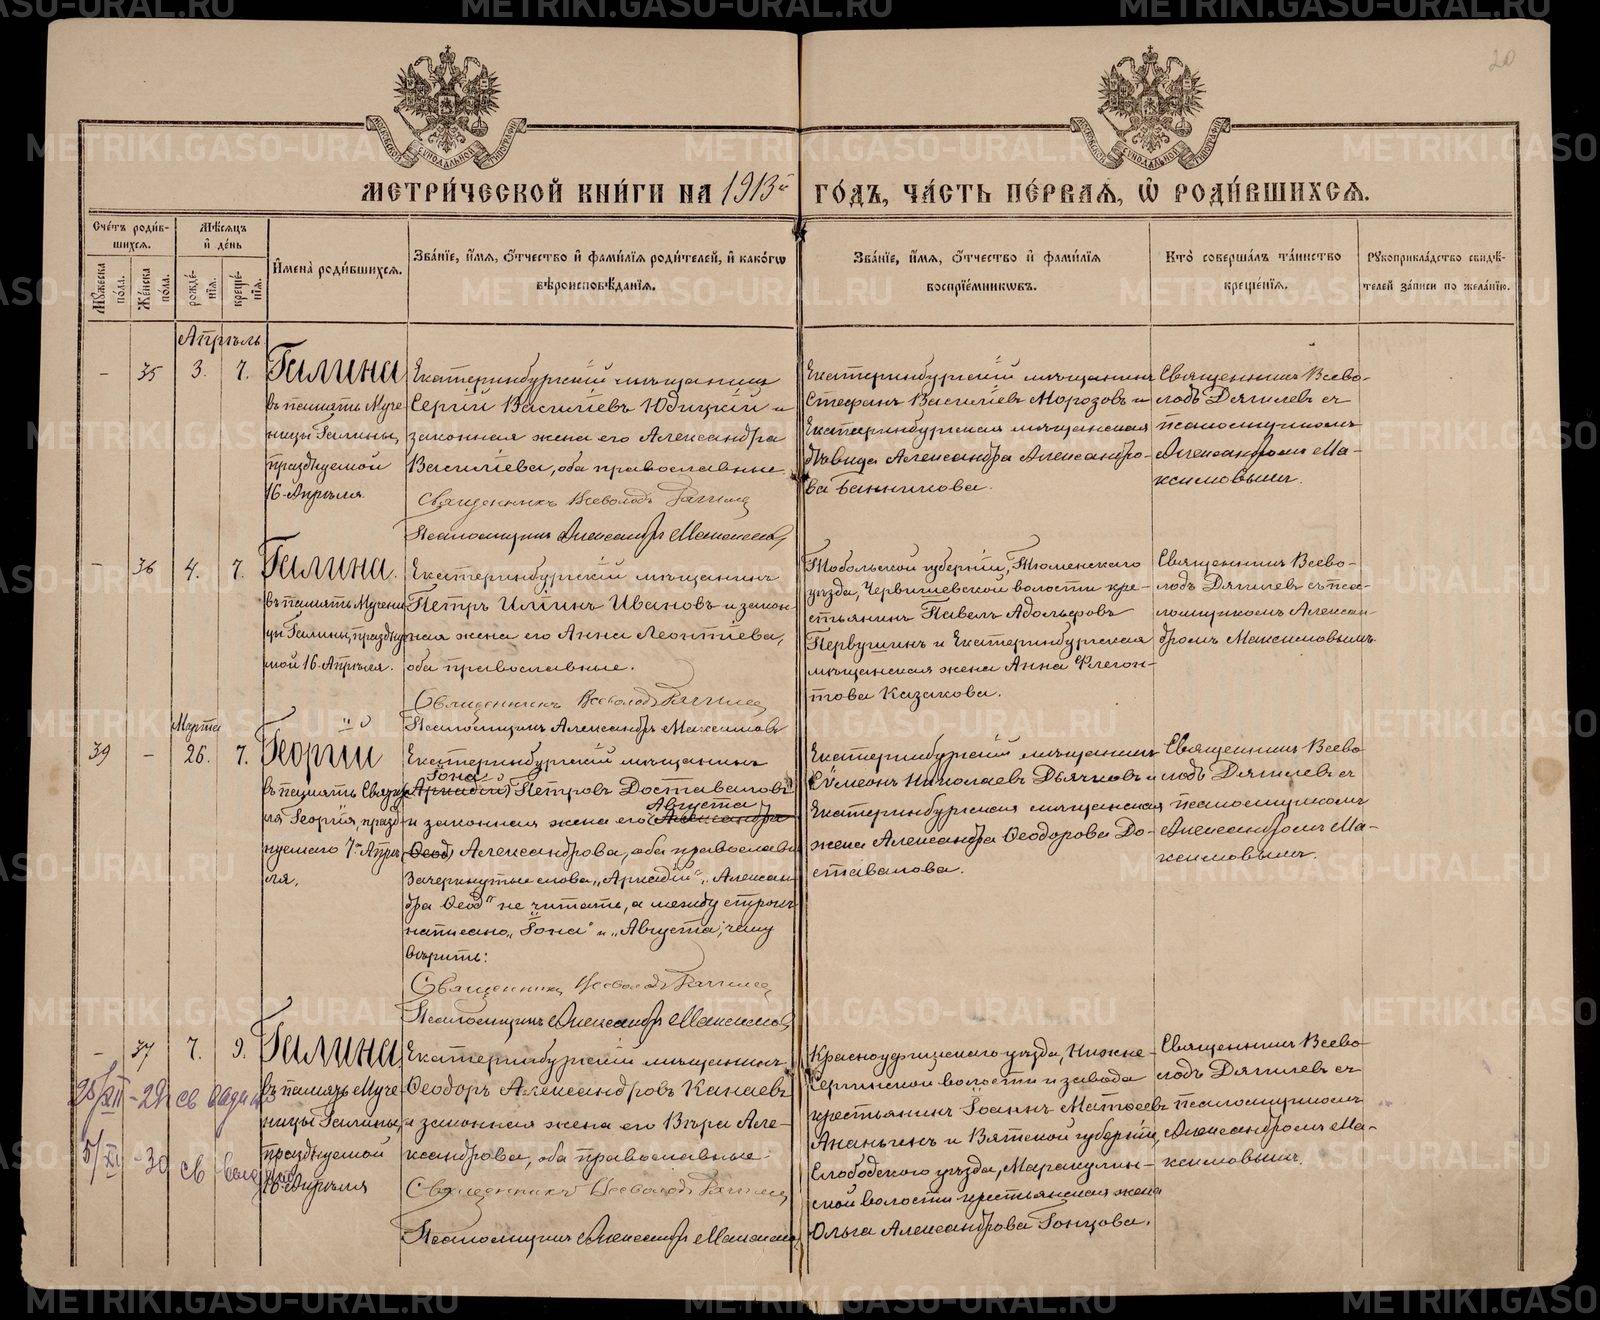 20
МОСКОВСКОЙ СѴНОДАЛЬНОЙ ТИПОГРАФІИ
МОСКОВСКОЙ СѴНОДАЛЬНОЙ ТИПОГРАФІИ
МЕТРИ́ЧЕСКОЙ КНИ́ГИ НА 1913й ГО́ДЪ, ЧА́СТЬ ПЕ́РВАѦ, Ѡ РОДИ́ВШИХСѦ.
Сче́тъ роди́в-
шихсѧ.
Му́жеска по́ла.
Же́нска по́ла.
Мѣ́сѧцъ
и҆ де́нь
рожде́-
нїѧ.
креще́-
нїѧ.
И҆мена̀ роди́вшихсѧ.
Зва́нїе, и҆́мѧ, ѻ҆́тчество и҆ фами́лїѧ роди́телей, и҆ како́гѡ
вѣроисповѣ́данїѧ.
Зва́нїе, и҆́мѧ, ѻ҆́тчество и҆ фами́лїѧ
воспрїе́мникѡвъ.
Кто̀ соверша́лъ та́инство
креще́нїѧ.
Рꙋкоприкла́дство свидѣ́-
телей за́писи по жела́нїю.
Апрѣль
- 35 3. 7.
Галина
въ память Муче
ницы Галины,
празднуемой
16 Апрѣля.
Екатеринбургскій мѣщанинъ
Сергій Василіевъ Юдицкій и
законная жена его Александра
Василіева, оба православные
Священникъ Всеволодъ
Псаломщикъ Александръ Максимовъ
Екатеринбургскій мѣщанинъ
Стефанъ Василіевъ Морозовъ и
Екатеринбургская мѣщанская
дѣвица Александра Александро-
ва Банникова.
Священникъ Всево-
лодъ Дягилевъ съ
псаломщикомъ
Александромъ Ма-
ксимовымъ.
- 36 4. 7.
Галина.
въ память Мучени
цы Галины, праздну
мой 16 Апрѣля.
Екатеринбургскій мѣщанинъ
Петръ Иліинъ Ивановъ и закон-
ная жена его Анна Леонтіева,
оба православные.
Священникъ Всеволодъ
Псаломщикъ Александръ Максимовъ
Тобольской губерніи, Тюменскаго
уѣзда, Червишевской волости кре-
стьянинъ Павелъ Адольфовъ
Первушинъ и Екатеринбургская
мѣщанская жена Анна Флегон-
това Казакова.
Священникъ Всево-
лодъ Дягилевъ съ пса-
ломщикомъ Алексан-
дромъ Максимовымъ
Марта
39 - 26. 7.
Георгій
въ память
Георгія, празд-
нуемаго 7го Апрѣ
ля.
Екатеринбургскій мѣщанинъ
Іона
(Аркадій) Петровъ Доставаловъ
Августа
и законная жена его (Александра
Ѳеод) Александрова, оба православн
Зачеркнутые слова „Аркадій“, „Алексан-
дра Ѳеод“ не читать, а между строкъ
написано „Іона“ и „Августа“, чему
вѣрить:
Священникъ Всеволодъ
Псаломщикъ Александръ Максимовъ
Екатеринбургскій мѣщанинъ
Сѷмеонъ Николаевъ Дьячковъ и
Екатеринбургская мѣщанская
жена Александра Ѳеодорова До-
ставалова.
Священникъ Всево
лодъ Дягилевъ съ
псаломщикомъ
Александромъ Ма-
ксимовымъ.
- 37 7. 9.
Галина
въ память Муче-
ницы Галины,
празднуемой
16 Апрѣля
Екатеринбургскій мѣщанинъ
Ѳеодоръ Александровъ Канаевъ
и законная жена его Вѣра Але-
ксандрова, оба православные.
Священникъ Всеволодъ
Псаломщикъ Александръ Максимовъ
Красноуфимскаго уѣзда, Нижне-
Сергинской волости и завода
крестьянинъ Іоаннъ Матѳеевъ
Ананьинъ и Вятской губерніи,
Слободскаго уѣзда, Маракулин-
ской волости крестьянская жена
Ольга Александрова Гонцова.
Священникъ Всево-
лодъ Дягилевъ съ
псаломщикомъ
Александромъ Ма-
ксимовымъ.
METRIKI.GASO-URAL.RU